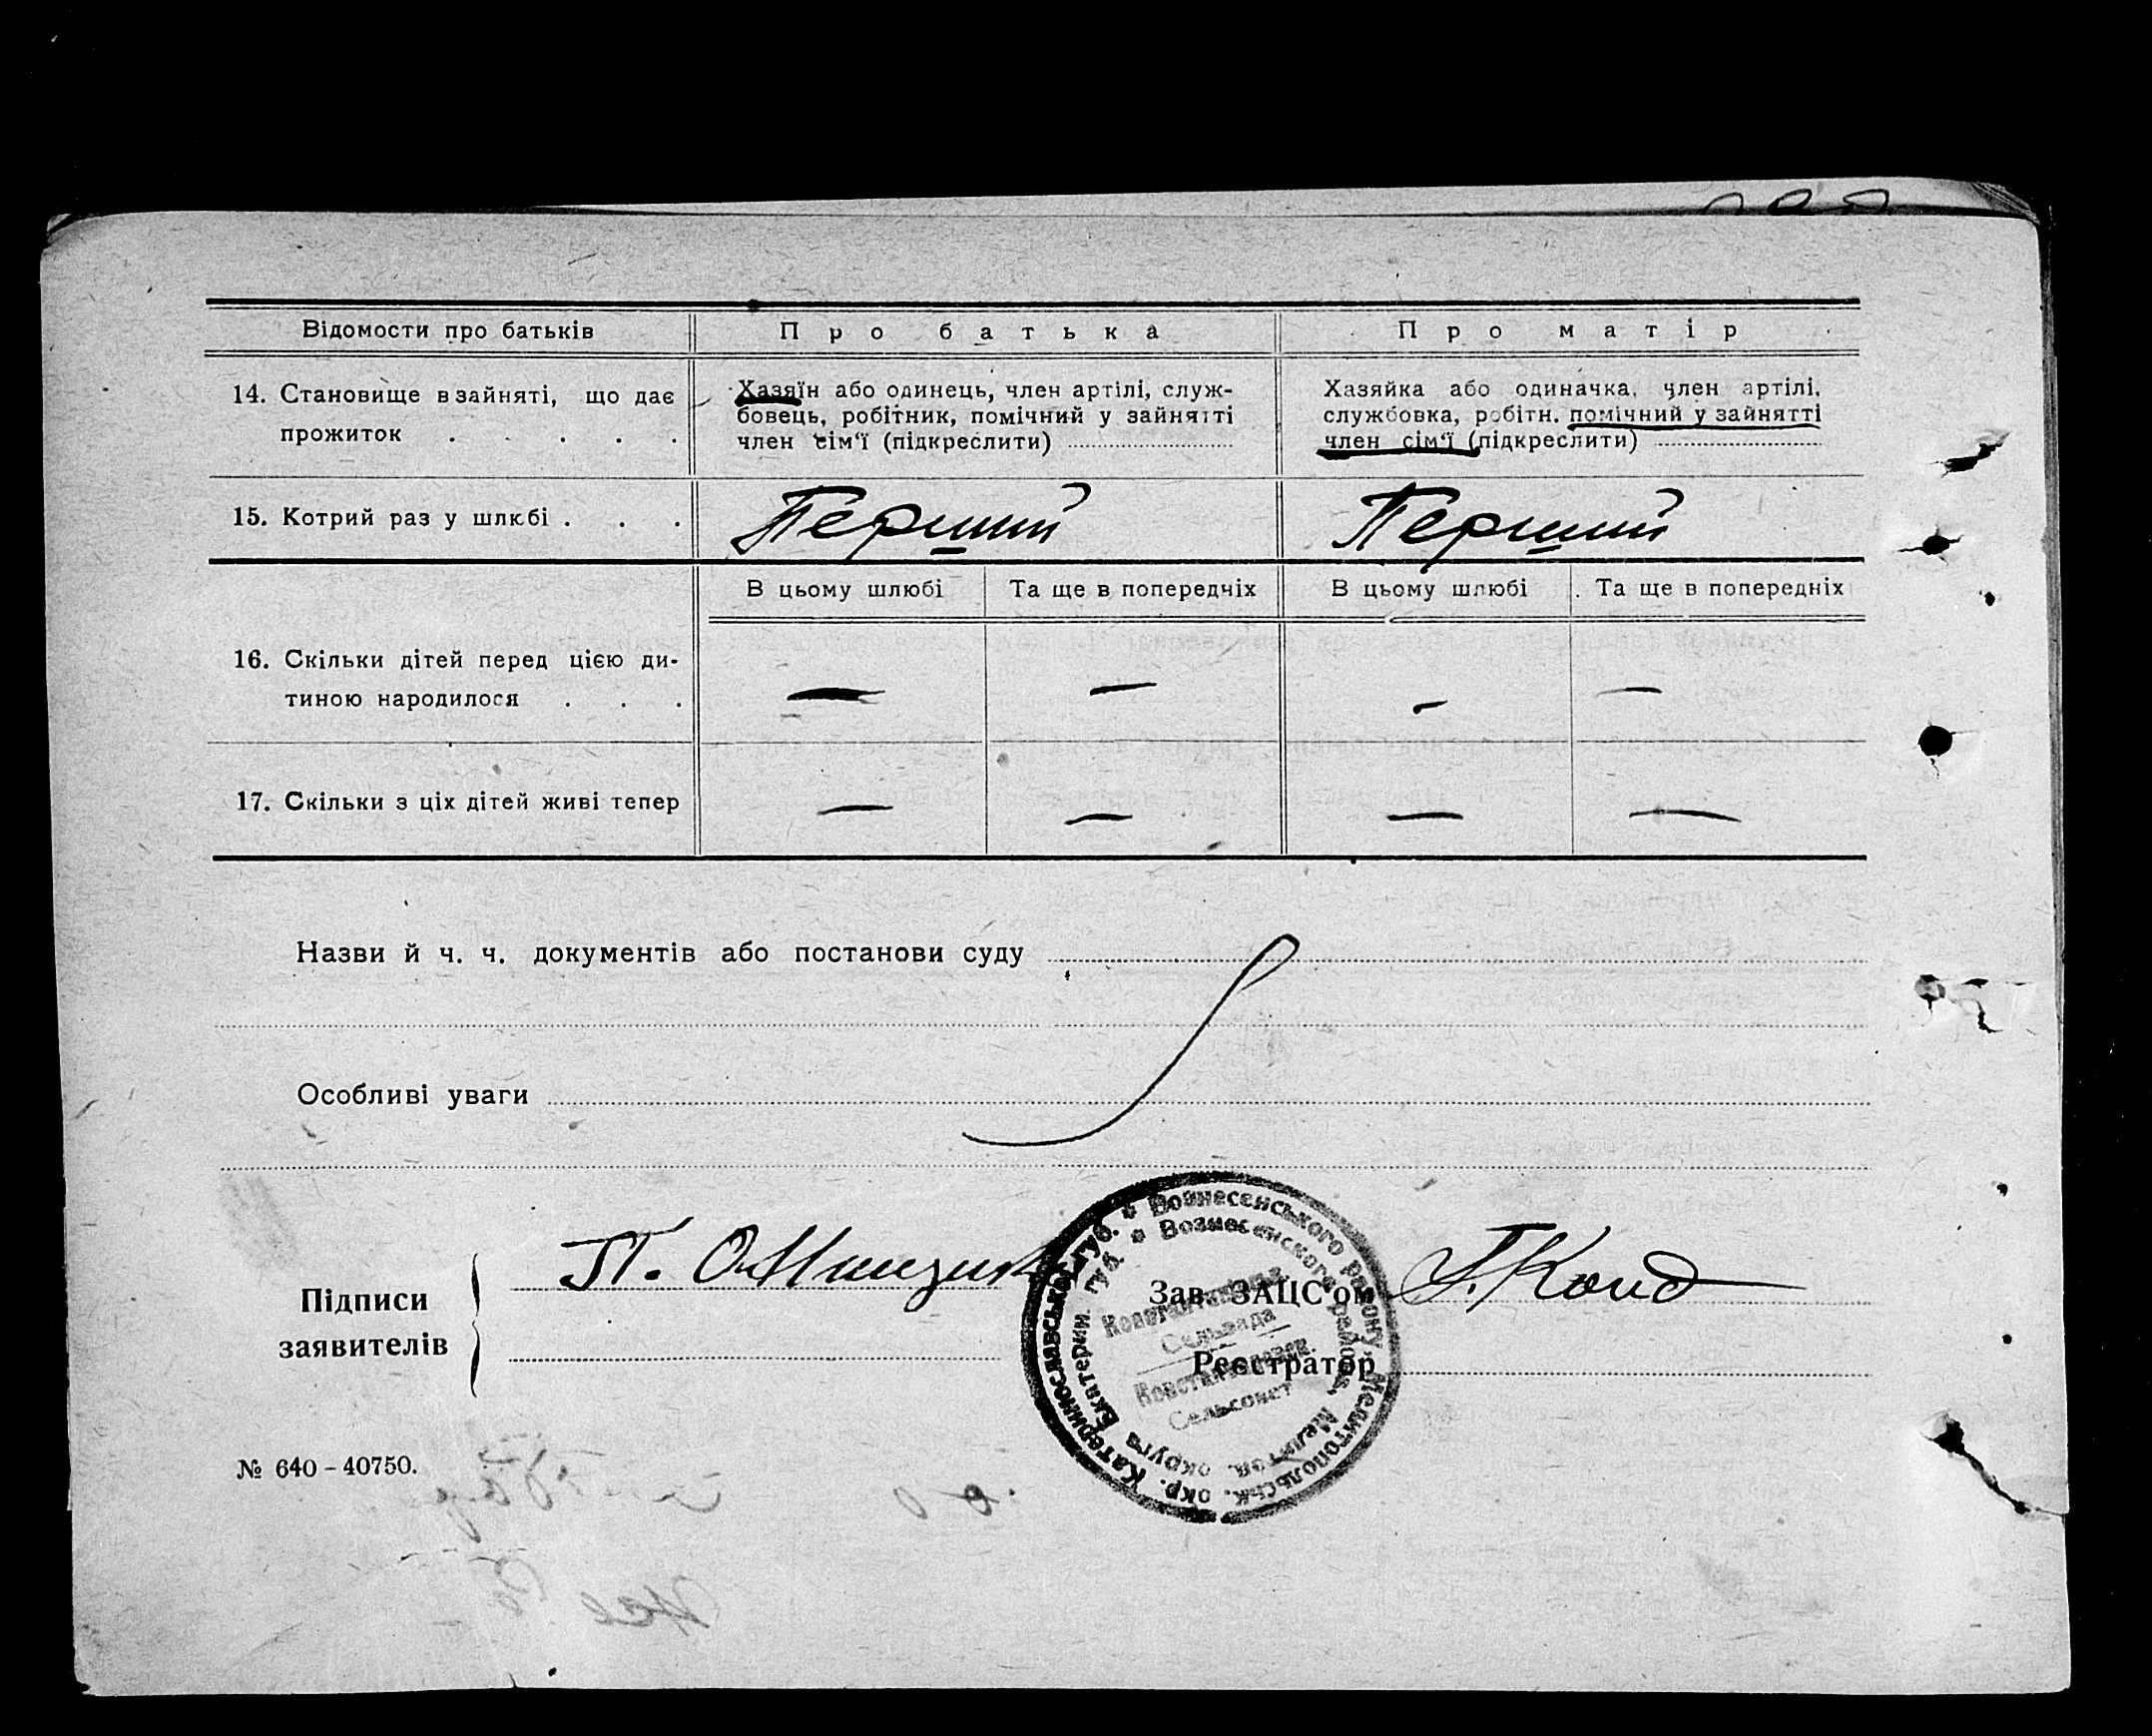 Відомости про батьків
Про батька
Про матір
14. Становище в зайняті, що дає
прожиток . . . . .
Хазяїн або одинець, член артілі, служ-
бовець, робітник, помічний у зайнятті
член сім‘ї (підкреслити)
Хазяйка або одиначка, член артілі,
службовка, робітн. помічний у зайнятті
член сім‘ї (підкреслити)
15. Котрий раз у шлюбі . . .
Перший
Перший
В цьому шлюбі
Та ще в попередніх
В цьому шлюбі
Та ще в попередніх
16. Скільки дітей перед цією ди-
тиною народилося . . .
— — — —
17. Скільки з ціх дітей живі тепер
— — — —
Назви й ч. ч. документів або постанови суду
Особливі уваги
Підписи
заявителів
П.
Зав. ЗАЦС‘ом
Реєстратор
Вознесенського району, Мелитопольськ. окр. Катеринославської губ.
Вознесенского района, Мелитоп. округа Екатерин. губ.
Сельсовет
№ 640 – 40750.